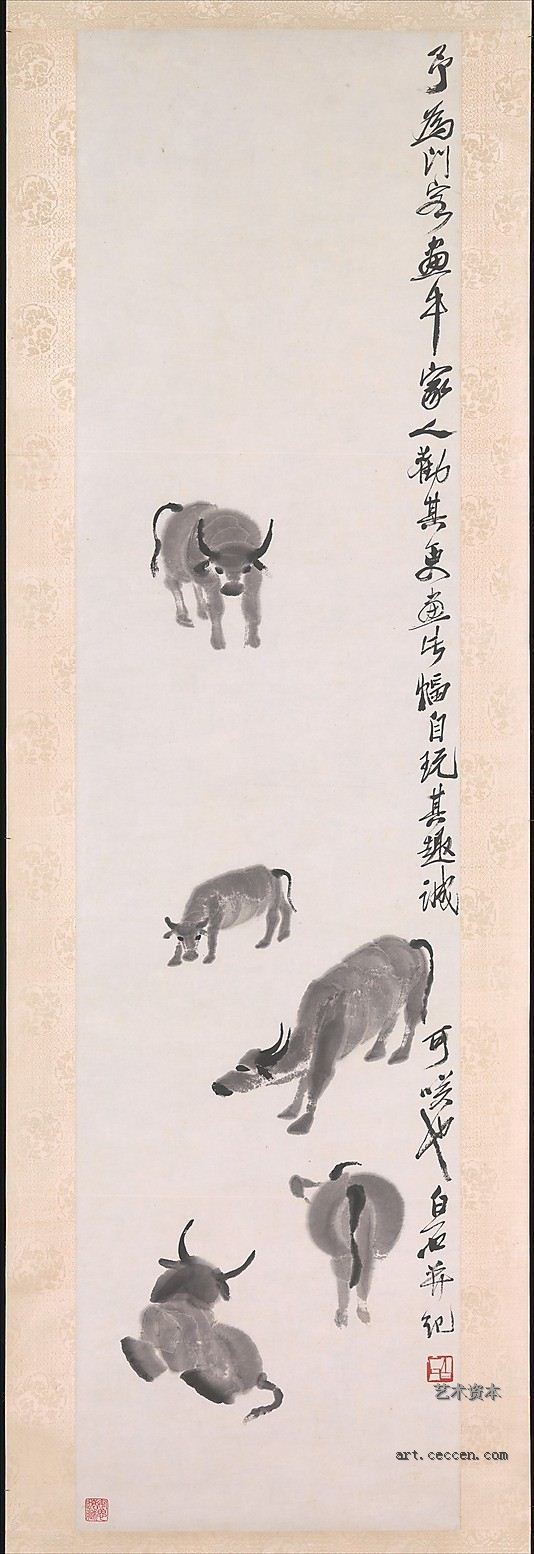 予為門客畫牛家人勸其更畫此幅自玩其趣誠
可咲也白石并紀
艺术资本
art.ceccen.com